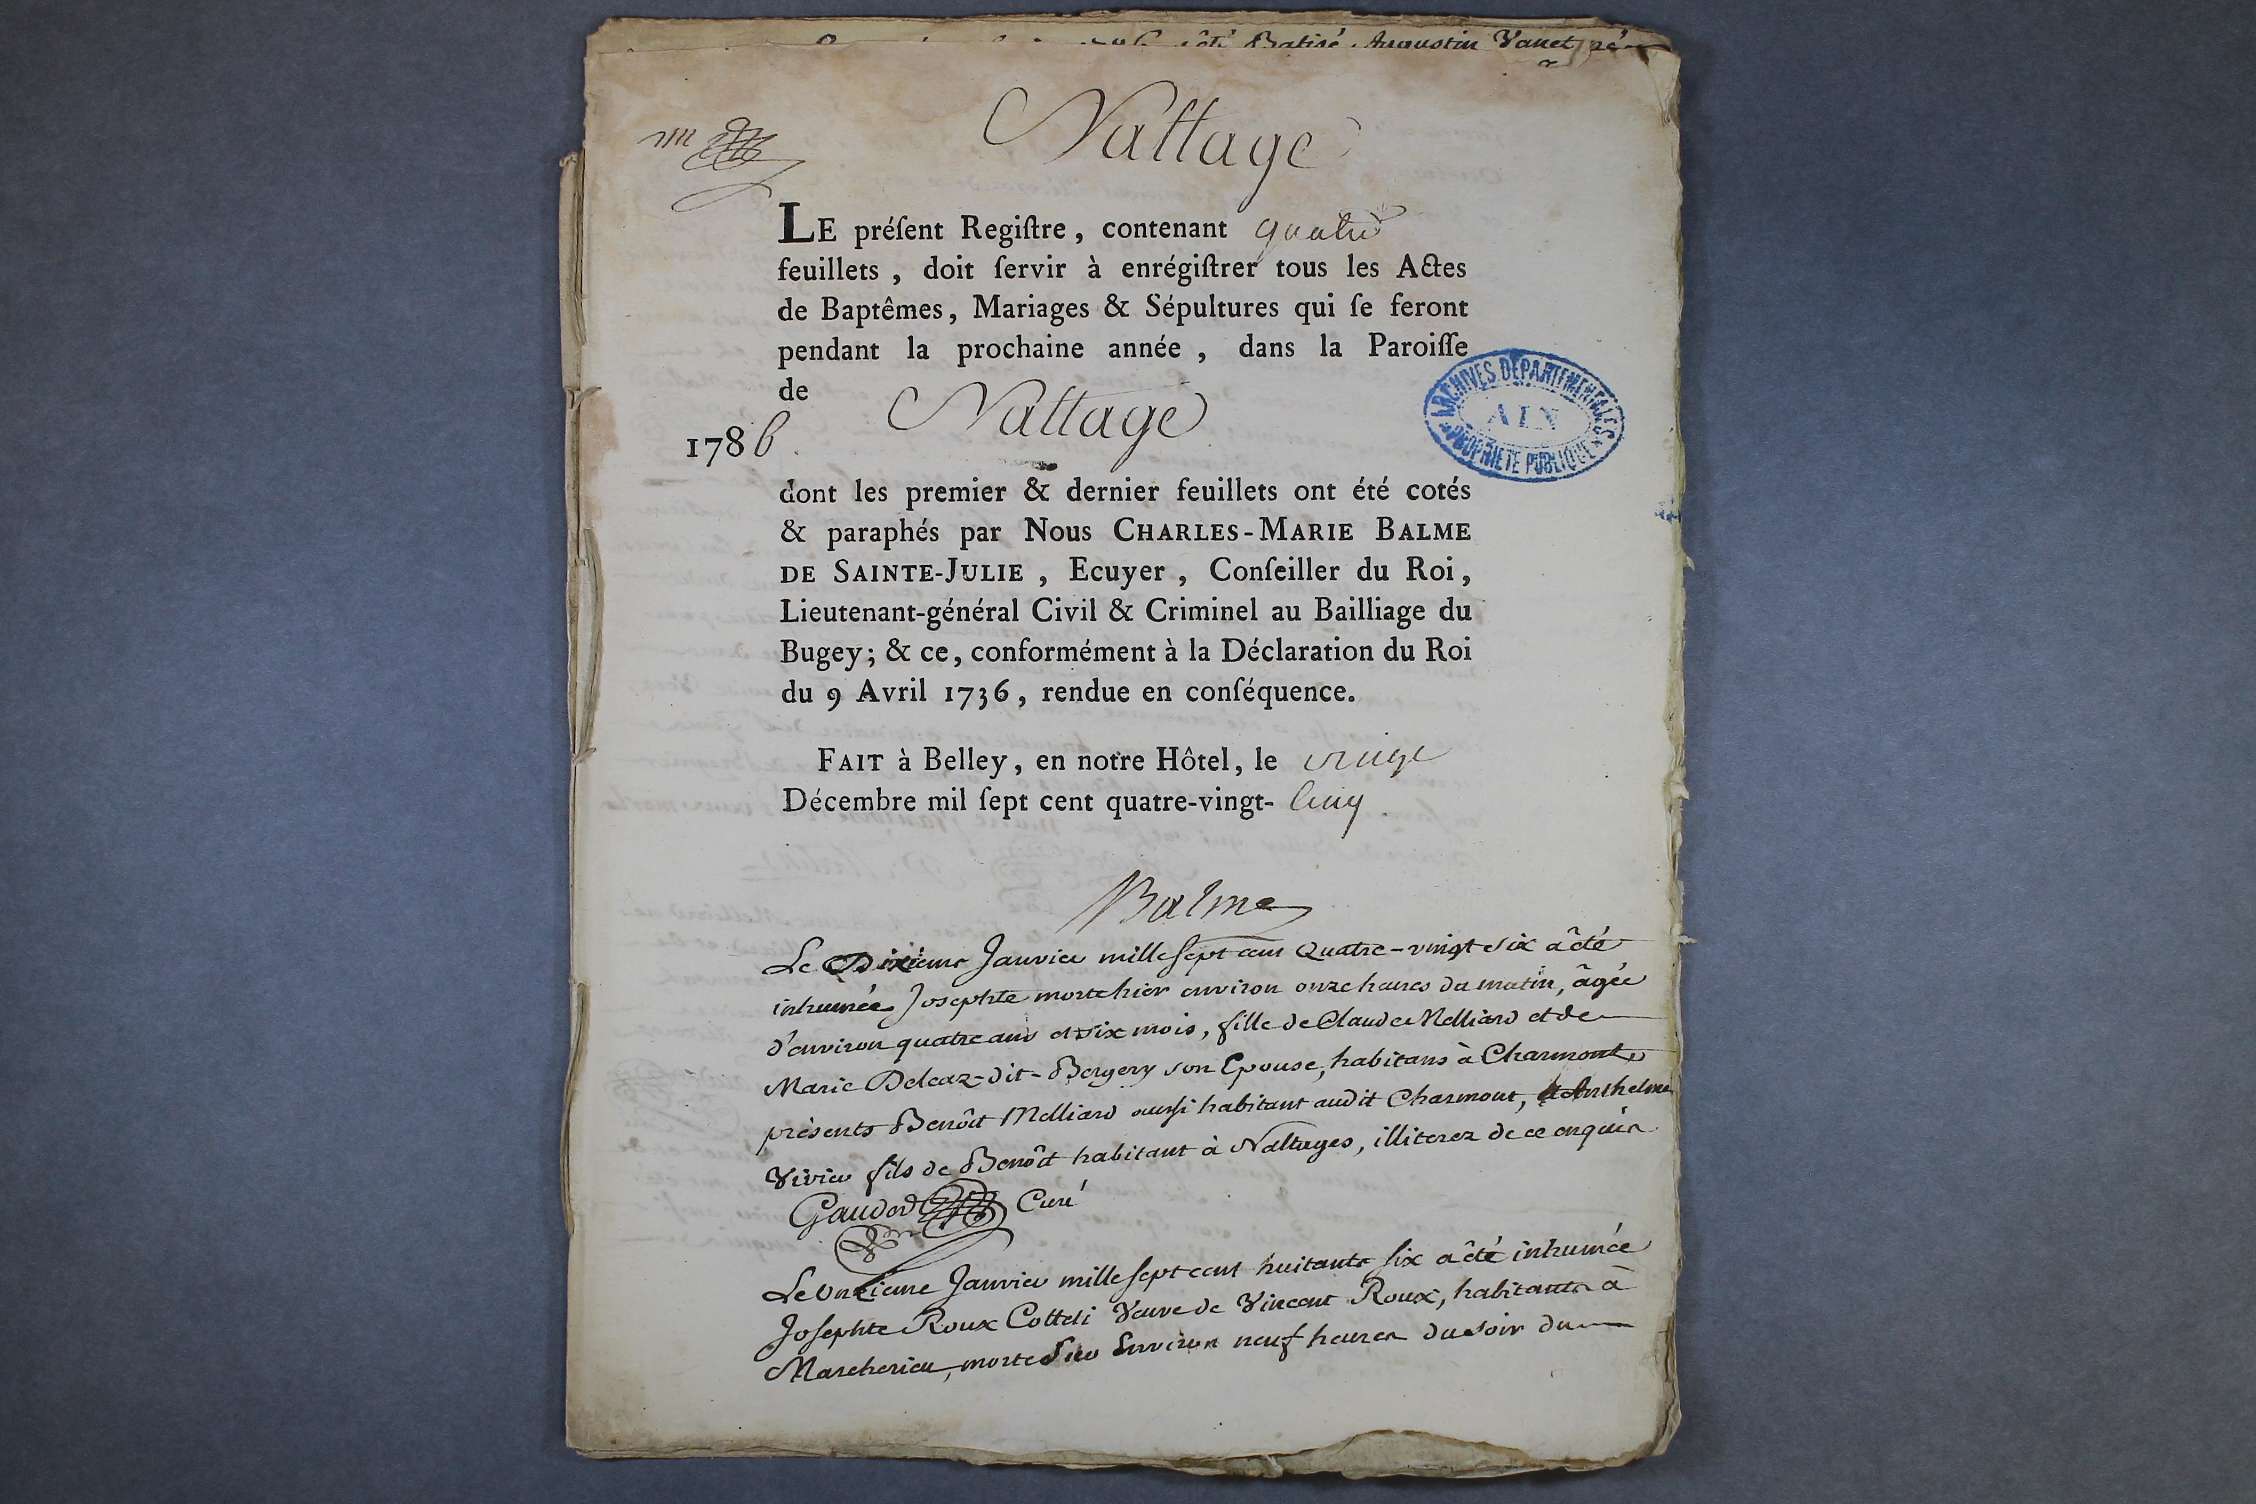 été Batisé Augustin Vanet né
Nattage
LE préſent Regiſtre, contenant quatre
feuillets, doit ſervir à enrégiſtrer tous les Actes
de Baptêmes, Mariages & Sépultures qui ſe feront
pendant la prochaine année, dans la Paroiſſe
de Nattage
1786.
ARCHIVES DÉPARTEMENTALES
AIN
PROPRIÉTÉ PUBLIQUE
dont les premier & dernier feuillets ont été cotés
& paraphés par Nous CHARLES-MARIE BALME
DE SAINTE-JULIE, Ecuyer, Conſeiller du Roi,
Lieutenant-général Civil & Criminel au Bailliage du
Bugey; & ce, conformément à la Déclaration du Roi
du 9 Avril 1736, rendue en conſéquence.
FAIT à Belley, en notre Hôtel, le vingt
Décembre mil ſept cent quatre-vingt-cinq
Balme
Le Dixieme Janvier mille sept cent Quatre-vingt six a été
inhumée Josephte morte hier environ onze heures du matin, âgée
d'environ quatre ans et six mois, fille de Claude Melliard et de
Marie Deleaz-dit-Bergery son Epouse, habitans à Charmont
présents Benôit Melliard aussi habitant audit Charmont, et Anthelme
Vivier fils de Benôit habitant à Nattages, illiterez de ce enquis
Gaudet Curé
Le Onzieme Janvier mille sept cent huitante six a été inhumée
Josephte Roux Cotteli Veuve de Vincent Roux, habitante à
Marcherieu, morte hier Environ neuf heures du soir du